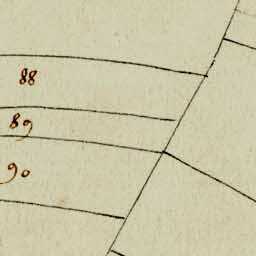 88
89
90